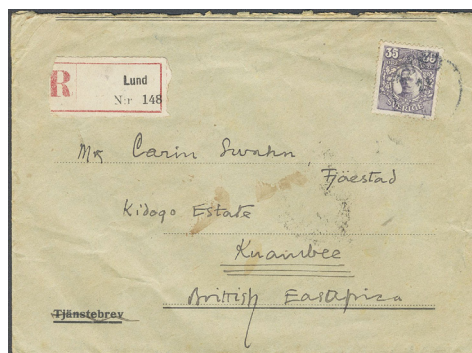 35
R
Lund
N:r 148
Mrs Carin Swahn,
Fjäestad
Kidogo Estate
Kuambee
British East Africa
Tjänstebrev